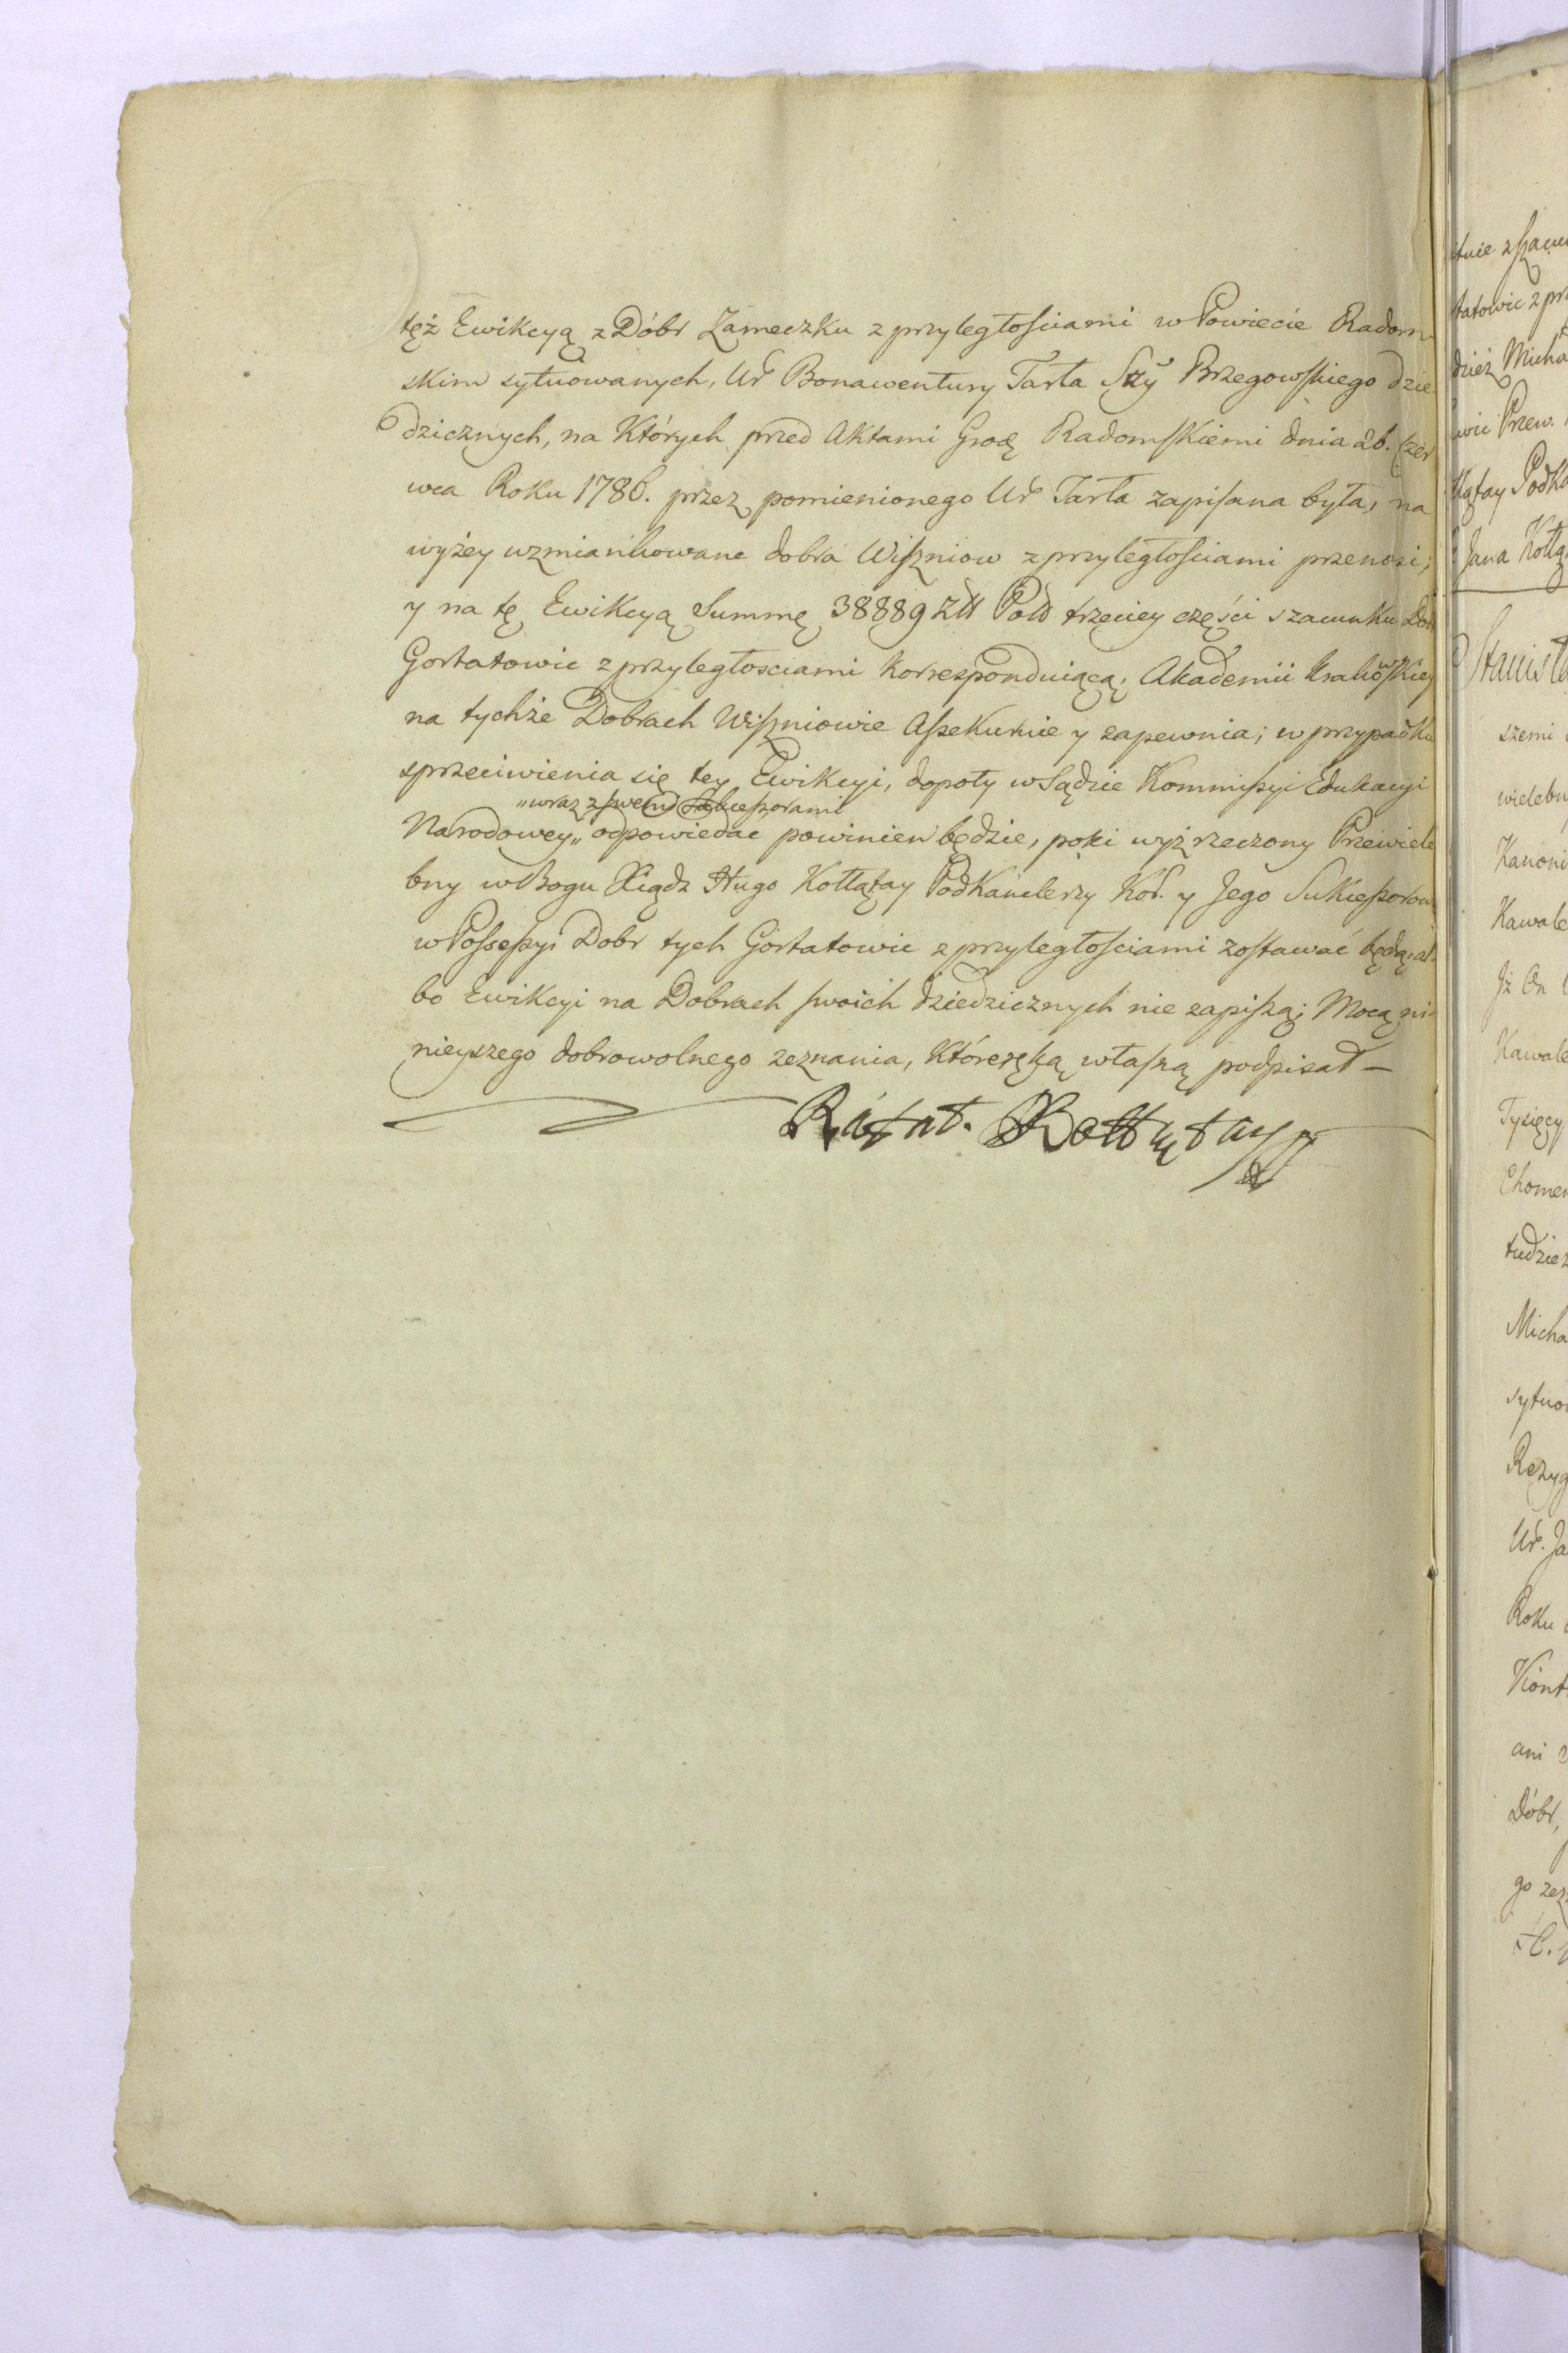 tęż Ewikcyą z Dóbr Zameczku z przyległościami w Powiecie Radom
skim sytuowanych, Ur Bonawentury Tarła Szy Brzegowskiego dzie
dzicznych, na Których przed Aktami Grodz Radomskiemi dnia 26. Czer
wca Roku 1786. przez pomienionego Ur Tarła zapisana była, na
wyżey wzmiankowane dobra Wiszniow z przyległościami przenosi;
y na tę Ewikcyą Summę 38889 Złł Pols trzeciey części szacunku Dobr
Gortatowic z przyległosciami Korrespondującą; Akademii Krakowskiey
na tychże Dobrach Wiszniowie Assekuruie y zapewnia; w przypadku
sprzeciwienia się tey Ewikcyi, dopoty w Sądzie Kommissyi Edukacyi
„wraz z swemi Sukcessorami
Narodowey„ odpowiedac powinien będzie, poki wyż rzeczony Przewiele
bny w Bogu Xiądz Hugo Kołłątay PodKanclerzy Kor. y Jego Sukcessorow
w Possessyi Dobr tych Gortatowic z przyległościami zostawać będą, al
bo Ewikcyi na Dobrach swoich dziedzicznych nie zapiszą; Mocą ni
nieyszego dobrowolnego zeznania, Które ręką własną podpisał —
Ráfał. Kołłątay
tuie z Szacun
tatowic z prz
dzież Micha
wic Przew.
łłątay Podka
Jana Kołłą
Stanisła
szemi
wielebn
Kanoni
Kawale
Jż On
Kawale
Tysięcy
Chomen
tudzież
Micha
sytuo
Rezyg
Ur. Ja
Roku
Kont
ani
Dóbr,
go zez